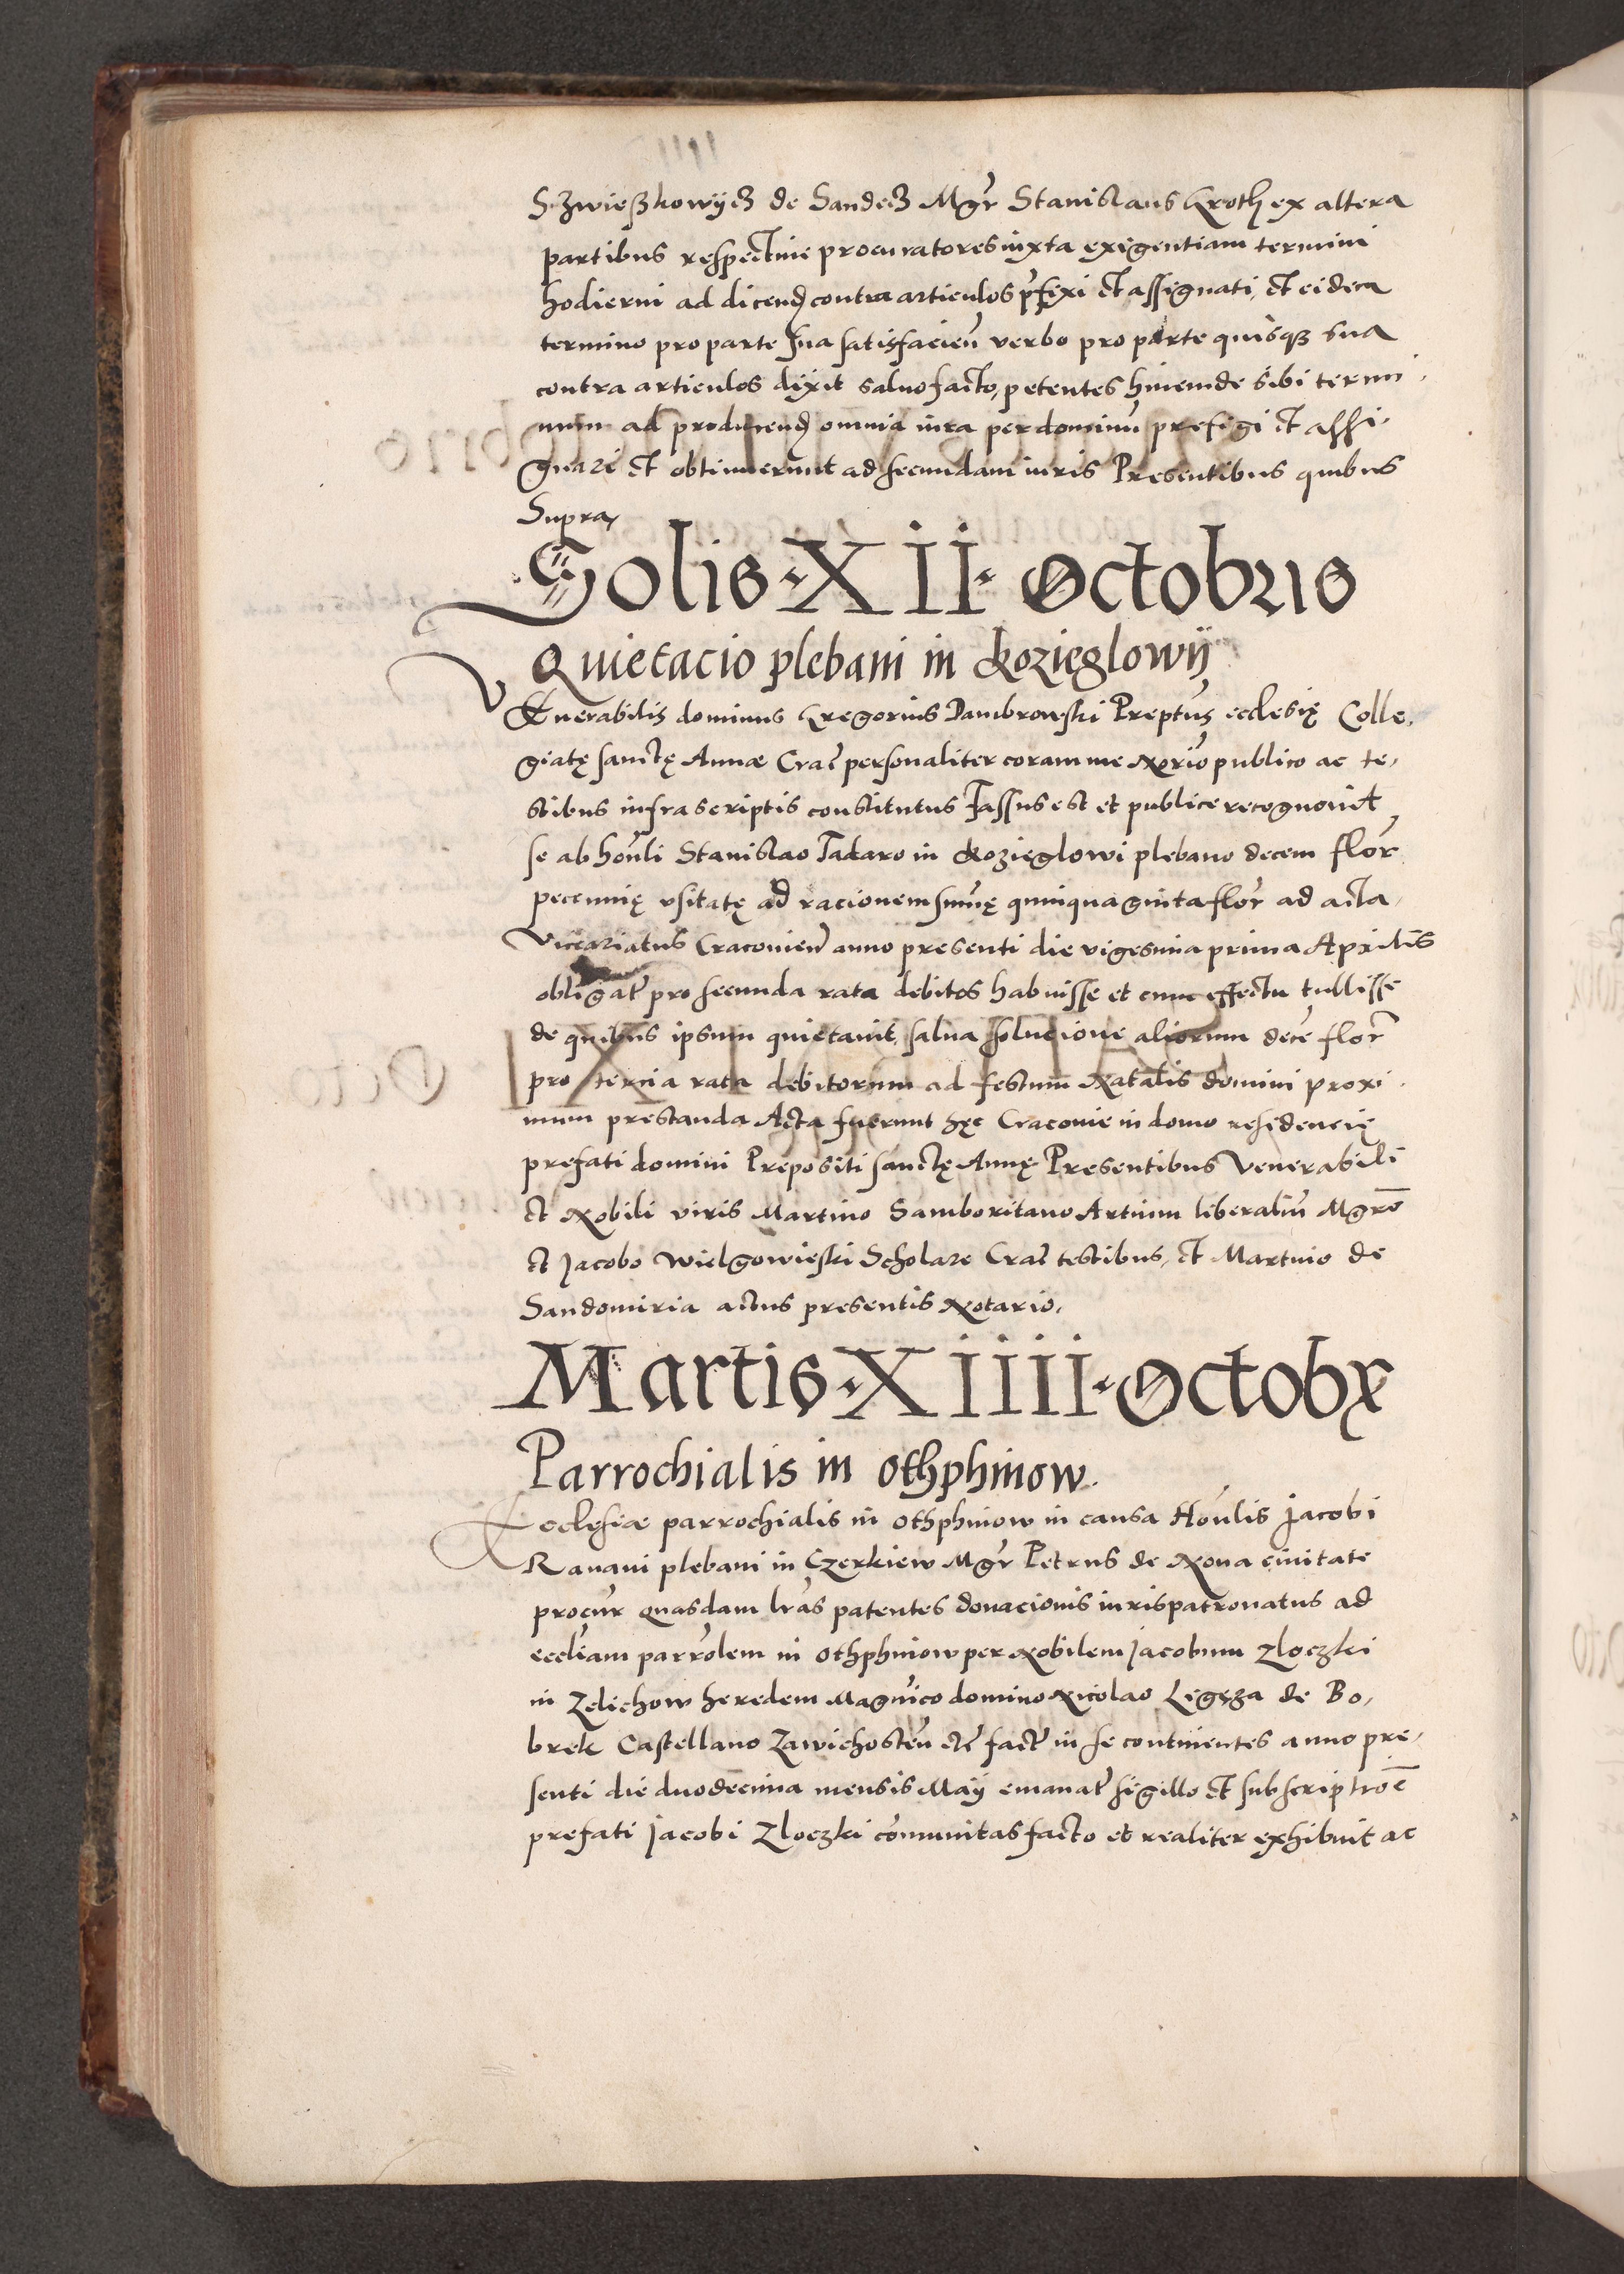 Szwieszkowycz de Sandecz Mgr Stanislaus Kroth ex altera
partibus respectiue procuratores iuxta exigentiam termini
hodierni ad dicend contra articulos pfixi et assignati, et eidem
termino pro parte sua satisfacien verbo pro parte quisque sua
contra articulos dixit saluo facto, petentes hincinde sibi termi
num ad producend omnia iura per dominu prefigi et assi
gnari et obtinuerunt ad secundam iuris Presentibus quibus
Supra
Solis · XII · Octobris
Quietacio plebani in Kozięglowÿ
Venerabilis dominus Gregorius Dambrowski Preptus ecclesię Colle,
giatę sanctę Annæ Crac personaliter coram me Norio publico ac te,
stibus infrascriptis constitutus Fassus est et publice recognouit
se ab honli Stanislao Tadaro in Kozięglowi plebano decem flor
pecunnię vsitatę ad racionem sumę quinquaginta flor ad acta
Vicariatus Cracouien anno presenti die vigesima prima Aprilis
obligat pro secunda rata debitos habuisse et cum effectu tullisse
de quibus ipsum quietauit, salua solucione aliorum dece flor
pro tercia rata debitorum ad festum Natalis domini proxi
mum prestanda Acta fuerunt hęc Cracouie in domo residencię
prefati domini Prepositi sanctę Annę Presentibus Venerabili
et Nobili viris Martino Samboritano Artium liberaliu Mgro
et Jacobo Wielgowieski Scholare Crac testibus, et Martino de
Sandomiria actus presentis Notario.
Martis · XIIII · Octobr
Parrochialis in Othphinow.
Ecclesiæ parrochialis in Othphinow in causa Honlis Jacobi
Rauani plebani in Czerkiew Mgr Petrus de Noua ciuitate
procur quasdam lras patentes donacionis iurispatronatus ad
eccliam parrolem in Othphinow per Nobilem Jacobum Zloczki
in Zelichow heredem Magnico domino Nicolao Ligęza de Bo,
brek Castellano Zawichosten etc fact in se continentes anno pre,
senti die duodecima mensis Maÿ emanat sigillo et subscriptroe
prefati Jacobi Zloczki comunitas facto et realiter exhibuit ac